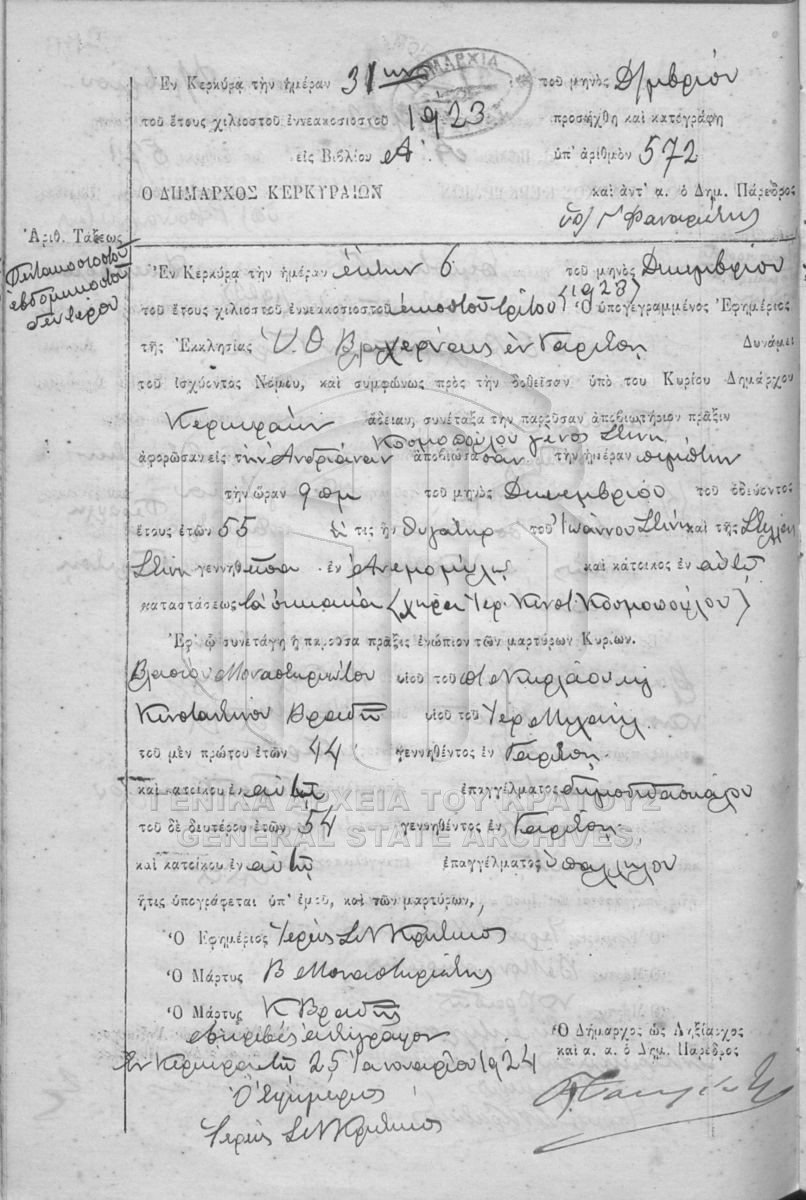 Ἐν Κερκύρᾳ τὴν ἡμέραν 31ην τοῦ μηνὸς Δ/μβρίου
ΔΗΜΑΡΧΙΑ
τοῦ ἔτους χιλιοστοῦ ἐννεακοσιοστοῦ 1923 προσήχθη καὶ κατεγράφη
εἰς Βιβλίον Α΄. ὑπ' ἀριθμὸν 572
Ο ΔΗΜΑΡΧΟΣ ΚΕΡΚΥΡΑΙΩΝ καὶ ἀντ' α. ὁ Δημ. Πάρεδρος
Ἀριθ. Τάξεως
Πεντακοσιοστοῦ
ἑβδομηκοστοῦ
δευτέρου
Ἐν Κερκύρᾳ τὴν ἡμέραν ἕκτην 6 τοῦ μηνὸς Δεκεμβρίου
τοῦ ἔτους χιλιοστοῦ ἐννεακοσιοστοῦ εἰκοστοῦ τρίτου (1923) Ὁ ὑπογεγραμμένος Ἐφημέριος
τῆς Ἐκκλησίας Υ. Θ Βλαχερνῶν ἐν Γαρίτσῃ Δυνάμει
τοῦ ἰσχύοντος Νόμου, καὶ συμφώνως πρὸς τὴν δοθεῖσαν ὑπὸ του Κυρίου Δημάρχου
Κερκυραίων ἄδειαν, συνέταξα τὴν παροῦσαν ἀποβιωτήριον πρᾶξιν
Κοσμοπούλου γένος
ἀφορῶσαν εἰς τὴν Ἀνδριάναν ἀποβιώσασαν τὴν ἡμέραν πέμπτην
τὴν ὥραν 9 πμ τοῦ μηνὸς Δεκεμβρίου τοῦ ὁδεύοντος
ἔτους ἐτῶν 55 Ἡ τις ἦν θυγάτηρ τοῦ Ἰωάννου καὶ τῆς
γεννηθεῖσα ἐν Ἀνεμομύλῳ καὶ κάτοικος ἐν αὐτῷ
καταστάσεως τὰ οἰκιακὰ (χήρα Ἱερ. Κωνστ. Κοσμοπούλου)
Ἐφ' ᾧ συνετάγη ἡ παροῦσα πρᾶξις ἐνώπιον τῶν μαρτύρων Κυρίων.
Βλασίου Μοναστηριώτου υἱοῦ τοῦ
Κωνσταντίνου Βραδῆ υἱοῦ τοῦ
τοῦ μὲν πρώτου ἐτῶν 44 γεννηθέντος ἐν Γαρίτσῃ
καὶ κατοίκου ἐν αὐτῇ ἐπαγγέλματος δημοδιδασκάλου
ΓΕΝΙΚΑ ΑΡΧΕΙΑ ΤΟΥ ΚΡΑΤΟΥΣ
τοῦ δὲ δευτέρου ἐτῶν 54 γεννηθέντος ἐν Γαρίτσῃ
GENERAL STATE ARCHIVES
καὶ κατοίκου ἐν αὐτῇ ἐπαγγέλματος ὑπαλλήλου
ἥτις ὑπογράφεται ὑπ' ἐμοῦ, καὶ τῶν μαρτύρων,
Ὁ Ἐφημέριος Ἱερεὺς
Ὁ Μάρτυς Β Μοναστηριώτης
Ὁ Μάρτυς Κ Βραδῆς
Ἀκριβὲς ἀντίγραφον
Ἐν Κερκύρᾳ τῇ 25 Ἰανουαρίου 1924
Ὁ Ἐφημέριος
Ἱερεὺς
Ὁ Δήμαρχος ὡς Ληξίαρχος
καὶ α. α. ὁ Δημ. Πάρεδρος